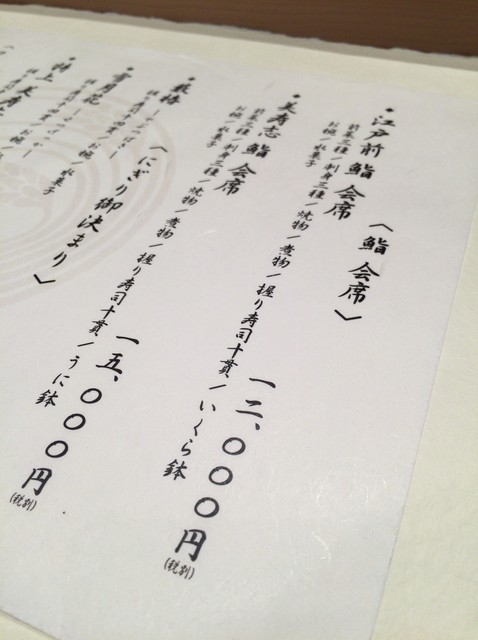 〈鮨 会席〉
・江戸前鮨 会席 一二、〇〇〇円
(税別)
前菜三種/刺身三種/焼物/煮物/握り寿司十貫/いくら鉢
お椀/水菓子
・美寿志鮨 会席 一五、〇〇〇円
(税別)
前菜三種/刺身三種/焼物/煮物/握り寿司十貫/うに鉢
お椀/水菓子
〈にぎり御決まり〉
雪月花
お椀/水菓子
特上